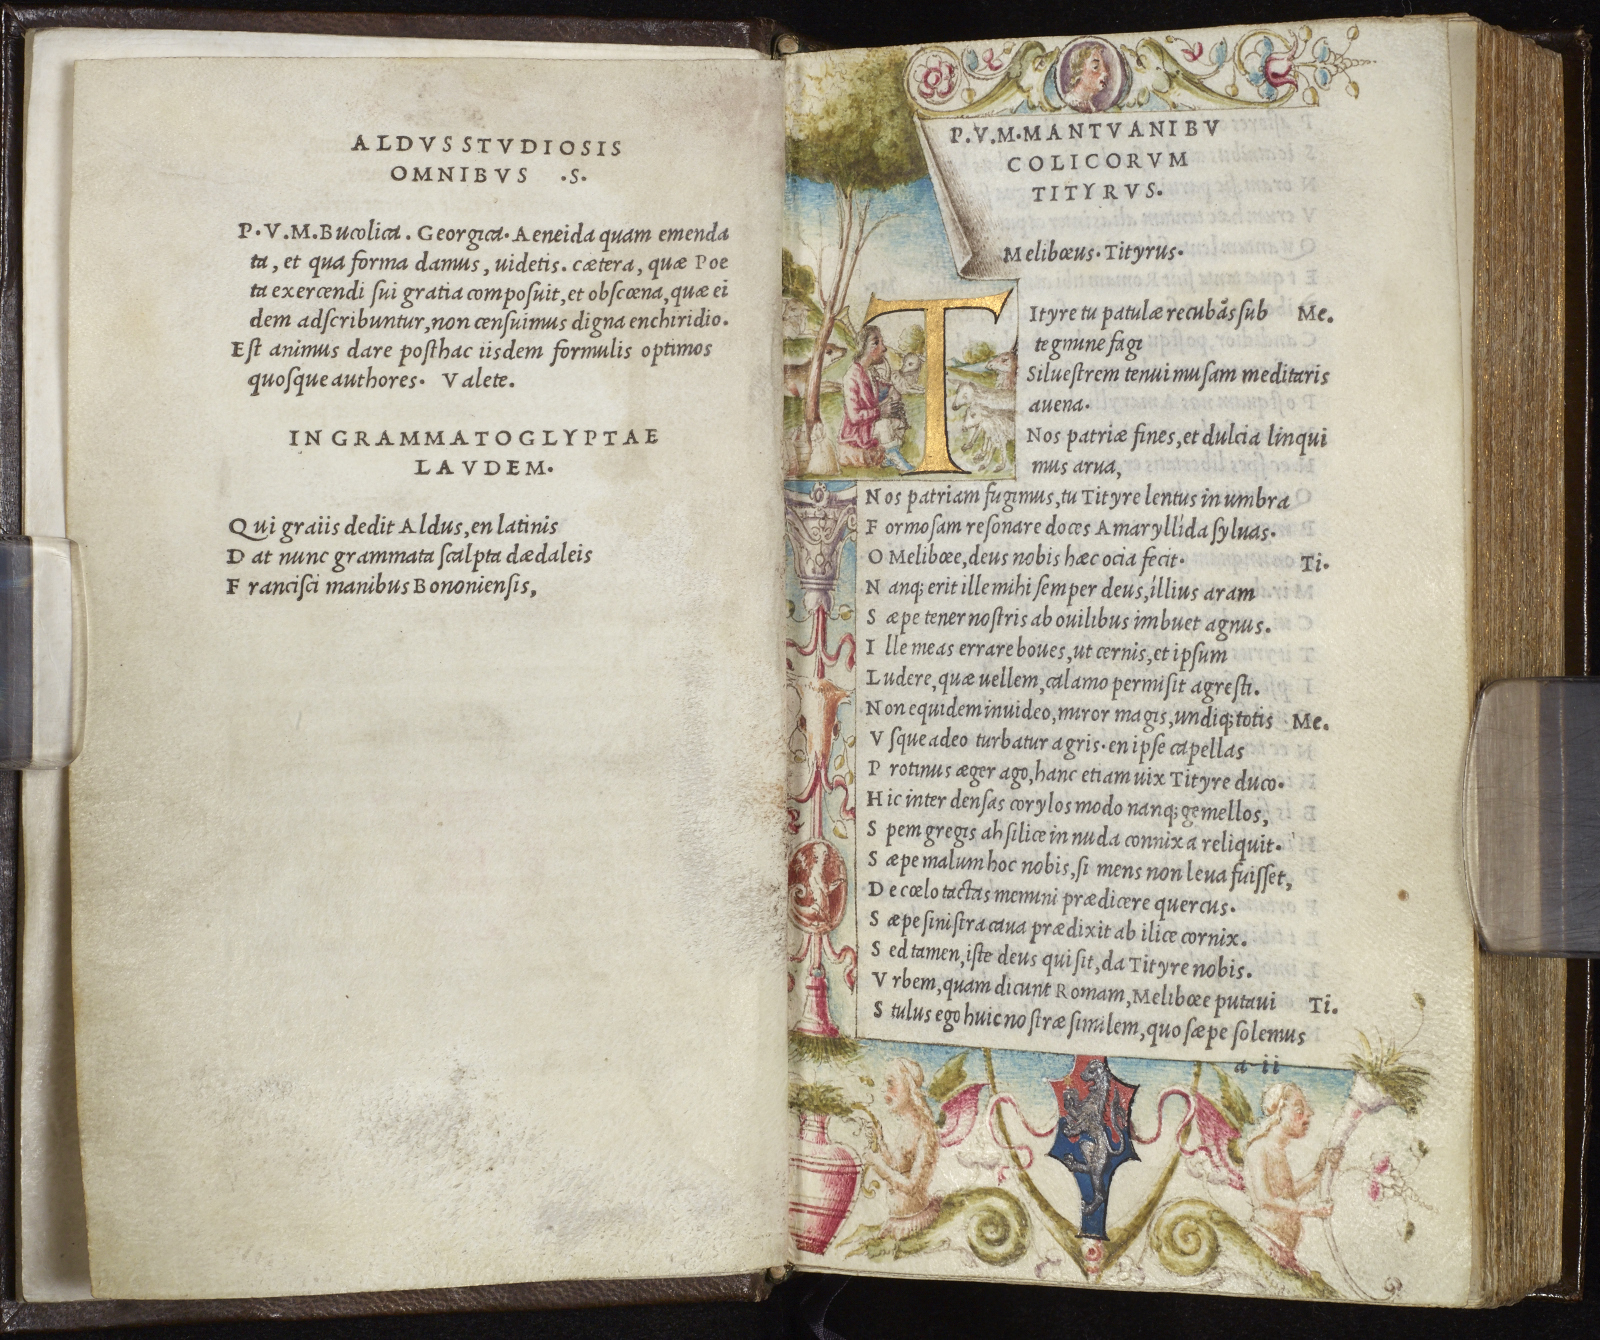 ALDVS STVDIOSIS
OMNIBVS .S.
P.V.M. Bucolica. Georgica. Aeneida quam emenda
ta, et qua forma damus, uidetis. cætera, quæ Poe
ta exercendi ſui gratia compoſuit, et obſcœna, quæ ei
dem adſcribuntur, non cenſuimus digna enchiridio.
Eſt animus dare poſthac iisdem formulis optimos
quoſque authores. Valete.
IN GRAMMATOGLYPTAE
LAVDEM.
Qui graiis dedit Aldus, en latinis
Dat nunc grammata ſcalpta dædaleis
Franciſci manibus Bononienſis,
P.V.M. MANTVANI BV
COLICORVM
TITYRVS.
Melibœus. Tityrus.
Tityre tu patulæ recubās ſub Me.
tegmine fagi
Silueſtrem tenui muſam meditaris
auena.
Nos patriæ fines, et dulcia linqui
mus arua,
Nos patriam fugimus, tu Tityre lentus in umbra
Formoſam reſonare doces Amaryllida ſyluas.
O Melibœe, deus nobis hæc ocia fecit. Ti.
Nanq; erit ille mihi ſemper deus, illius aram
Sæpe tener noſtris ab ouilibus imbuet agnus.
Ille meas errare boues, ut cernis, et ipſum
Ludere, quæ uellem, calamo permiſit agreſti.
Non equidem inuideo, miror magis, undiq; totis Me.
Vſque adeo turbatur agris. en ipſe capellas
Protinus æger ago, hanc etiam uix Tityre duco.
Hic inter denſas corylos modo nanq; gemellos,
Spem gregis ah ſilice in nuda connixa reliquit.
Sæpe malum hoc nobis, ſi mens non leua fuiſſet,
De cœlo tactas memini prædicere quercus.
Sæpe ſiniſtra caua prædixit ab ilice cornix.
Sed tamen, iſte deus qui ſit, da Tityre nobis.
Vrbem, quam dicunt Romam, Melibœe putaui Ti.
Stulus ego huic noſtræ ſimilem, quo ſæpe ſolemus
a ii